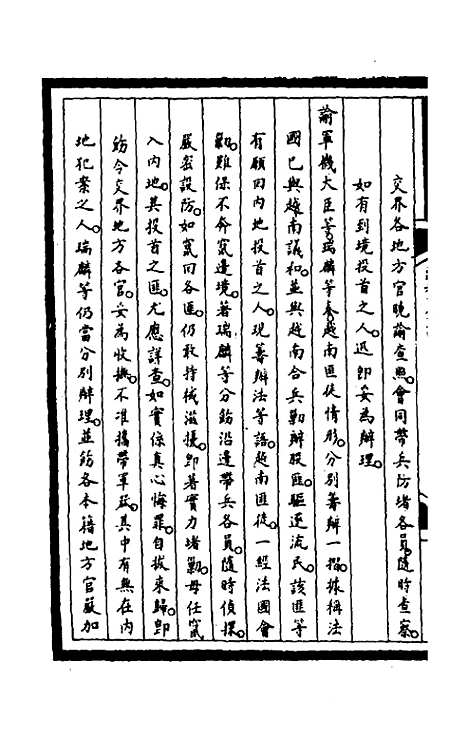 交界各地方官曉諭查照會同帶兵防堵各員隨時查察
如有到境投首之人迅即妥為辦理
諭軍機大臣等瑞麟等奏越南匪徒情形分別籌辦一摺據稱法
國已與越南議和並與越南合兵勦辦股匪驅逐流民該匪等
有願回內地投首之人現籌辦法等語越南匪徒一經法國會
勦難保不奔竄邊境著瑞麟等分飭沿邊帶兵各員隨時偵探
嚴密設防如竄回各匪仍敢持械滋擾即著實力堵勦毋任竄
入內地其投首之匪尤應詳查如實係真心悔罪自拔來歸即
飭令交界地方各官妥為收撫不准攜帶軍器其中有無在內
地犯案之人瑞麟等仍當分別辦理並飭各本籍地方官嚴加